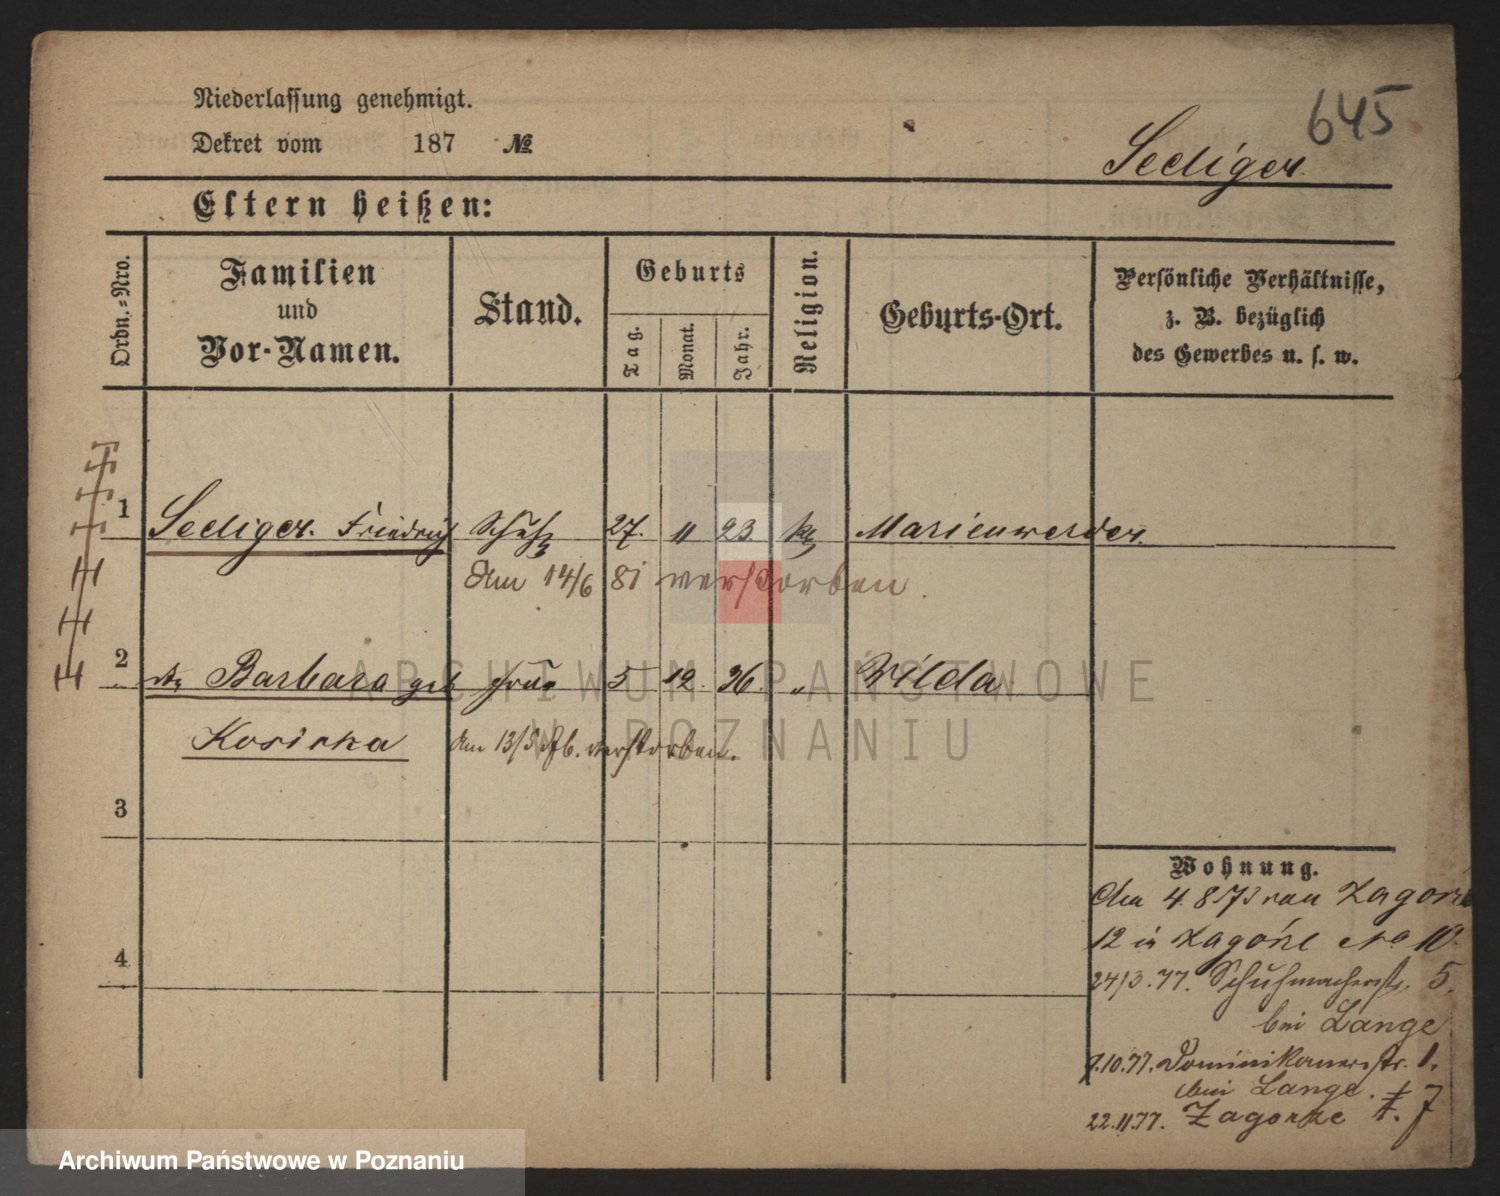 645
Niederlassung genehmigt.
Dekret vom 187 №
Sediger
Eltern heißen:
Ordn.-Nro.
Familien
und
Vor-Namen.
Stand.
Geburts
Tag.
Monat.
Jahr.
Religion.
Geburts-Ort.
Persönliche Verhältnisse,
z. B. bezüglich
des Gewerbes u. s. w.
1 Sediger. Friedrich Schuhm 27. 11 23 kth Marienwerder.
Am 14/6 81 verstorben.
2 Barbara geb Frau 5 12. 26. " Wilda
Kosicka Am 13/5 verstorben.
3
4
Wohnung.
Am 4. 8 73 von Zagorze
12 in Zagórze No 10.
24/3.77. Schuhmacherstr. 5.
bei Lange
9.10.77. Dominikanerstr. 1.
bei Lange.
22.11.77. Zagorze 7
ARCHIWUM PAŃSTWOWE
W POZNANIU
Archiwum Państwowe w Poznaniu